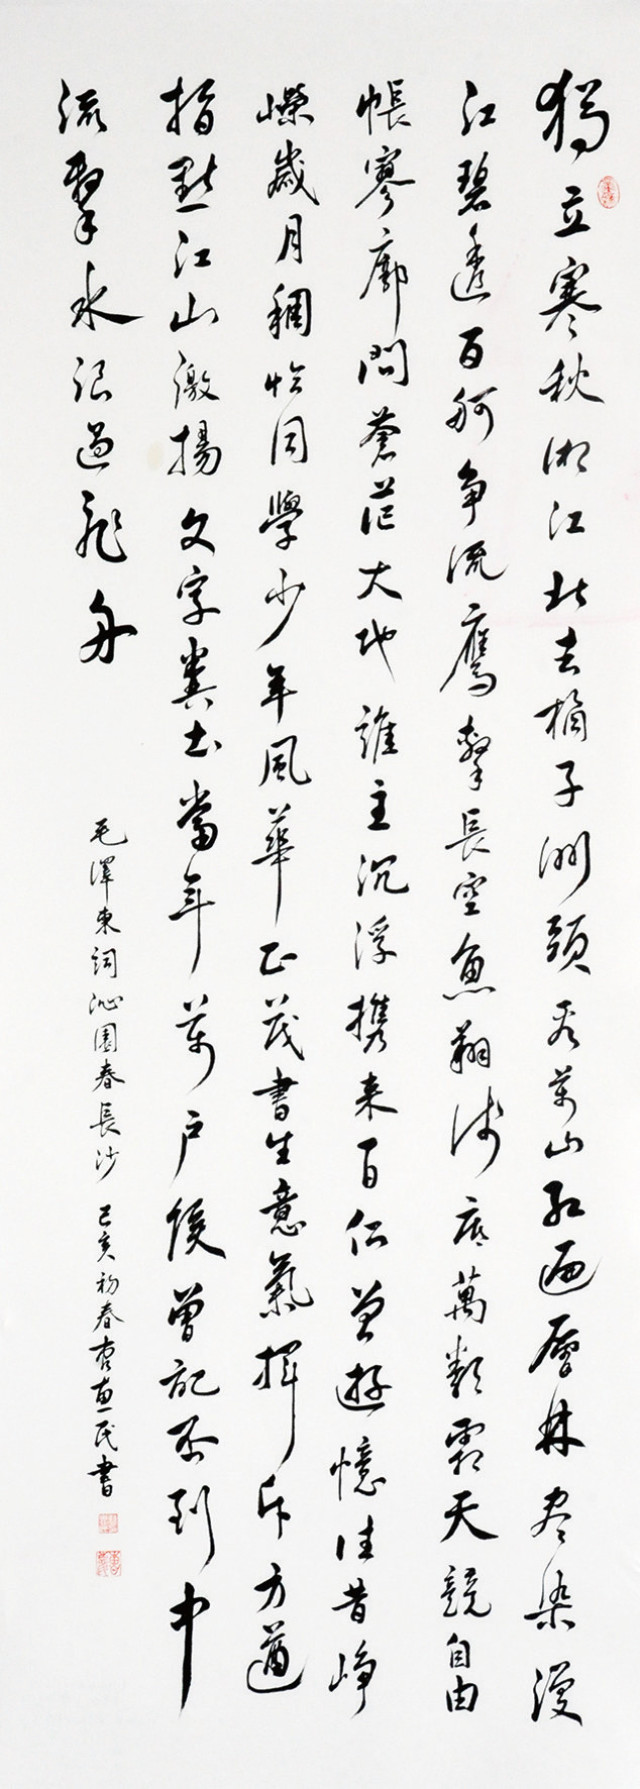 獨立寒秋湘江北去橘子洲頭看萬山紅遍層林盡染漫
江碧透百舸争流鷹擊長空魚翔淺底萬類霜天競自由
悵寥廓問蒼茫大地誰主沉浮携来百侣曾遊憶往昔崢
嶸歲月稠恰同學少年風華正茂書生意氣揮斥方遒
指點江山激揚文字糞土當年萬户侯曾記否到中
流擊水浪遏飛舟
毛澤東詞沁園春長沙 己亥初春 惠民書